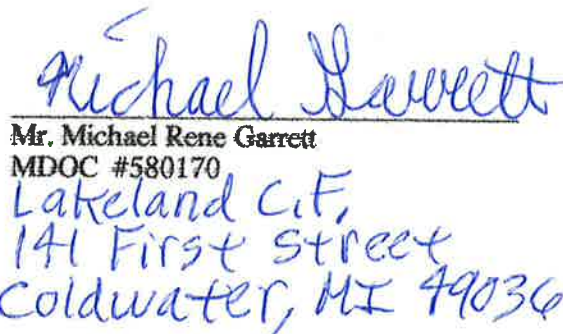 Michael Garrett
Mr. Michael Rene Garrett
MDOC #580170
Lakeland C.F.
141 First Street
Coldwater, MI 49036